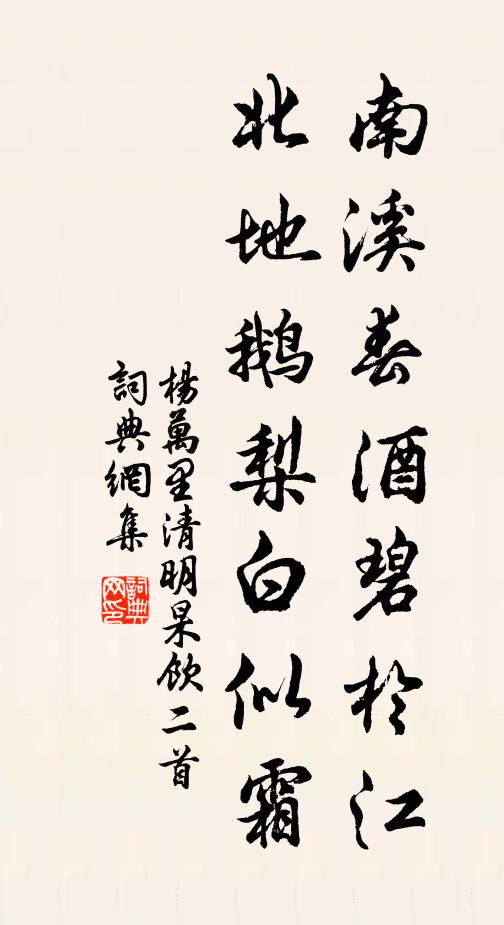 南溪春酒碧於江
北地鵝梨白似霜
楊萬里清明杲飲二首
詞典網集
詞典
网印